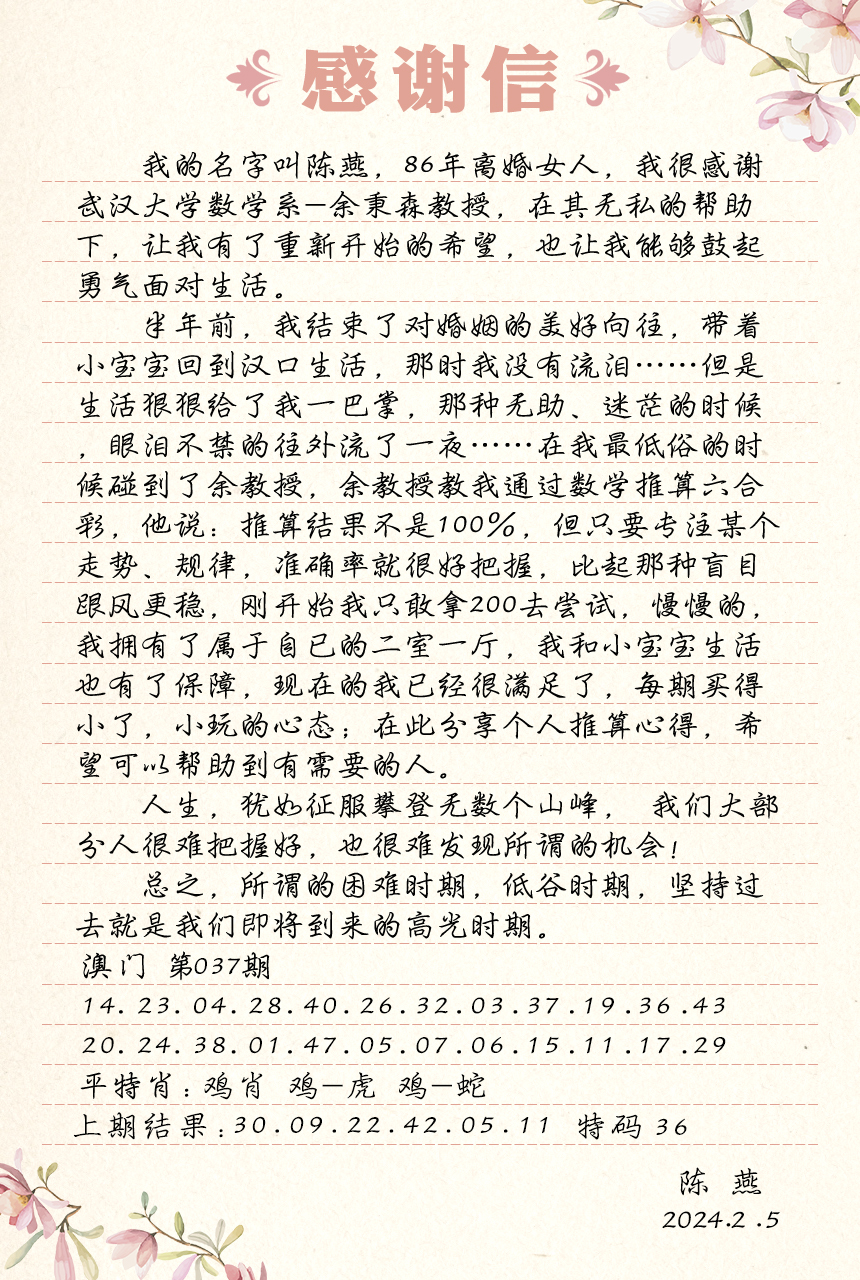 感谢信
我的名字叫陈燕，86年离婚女人，我很感谢
武汉大学数学系—余秉森教授，在其无私的帮助
下，让我有了重新开始的希望，也让我能够鼓起
勇气面对生活。
半年前，我结束了对婚姻的美好向往，带着
小宝宝回到汉口生活，那时我没有流泪……但是
生活狠狠给了我一巴掌，那种无助、迷茫的时候
，眼泪不禁的往外流了一夜……在我最低俗的时
候碰到了余教授，余教授教我通过数学推算六合
彩，他说：推算结果不是100%，但只要专注某个
走势、规律，准确率就很好把握，比起那种盲目
跟风更稳，刚开始我只敢拿200去尝试，慢慢的，
我拥有了属于自已的二室一厅，我和小宝宝生活
也有了保障，现在的我已经很满足了，每期买得
小了，小玩的心态；在此分享个人推算心得，希
望可以帮助到有需要的人。
人生，犹如征服攀登无数个山峰， 我们大部
分人很难把握好，也很难发现所谓的机会！
总之，所谓的困难时期，低谷时期，坚持过
去就是我们即将到来的高光时期。
澳门 第037期
14.23.04.28.40.26.32.03.37.19.36.43
20.24.38.01.47.05.07.06.15.11.17.29
平特肖：鸡肖 鸡—虎 鸡—蛇
上期结果：30.09.22.42.05.11 特码 36
陈 燕
2024.2.5